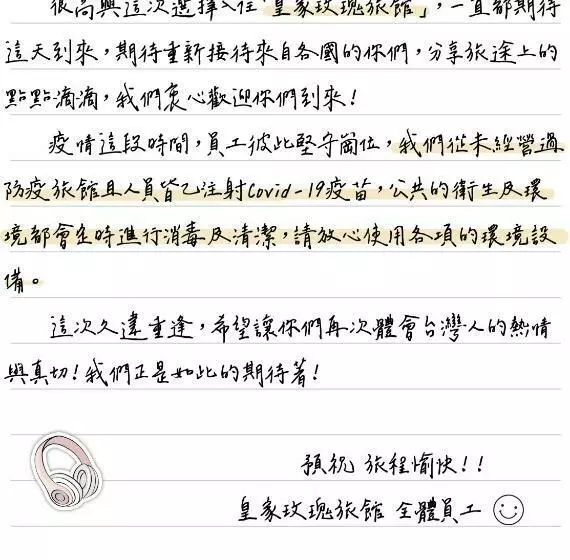 很高興這次選擇入住「皇家玫瑰旅館」，一直都期待
這天到來，期待重新接待來自各國的你們，分享旅途上的
點點滴滴，我們衷心歡迎你們到來！
疫情這段時間，員工彼此堅守崗位，我們從未經營過
防疫旅館且人員皆已注射Covid-19疫苗，公共的衛生及環
境都會定時進行消毒及清潔，請放心使用各項的環境設
備。
這次久違重逢，希望讓你們再次體會台灣人的熱情
與真切！我們正是如此的期待著！
預祝 旅程愉快！！
皇家玫瑰旅館 全體員工